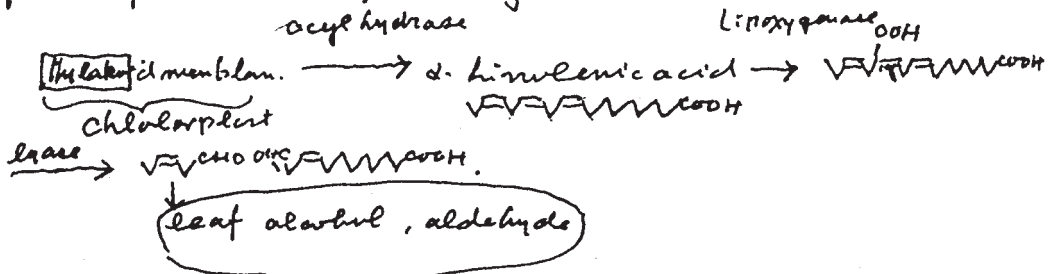 acyl hydrase Lipoxygenase
Thylakoid menblan. → α. Linolenic acid → OOH COOH
COOH
Chlolorplast
lyase → CHO OHC COOH.
leaf alcohol, aldehyde